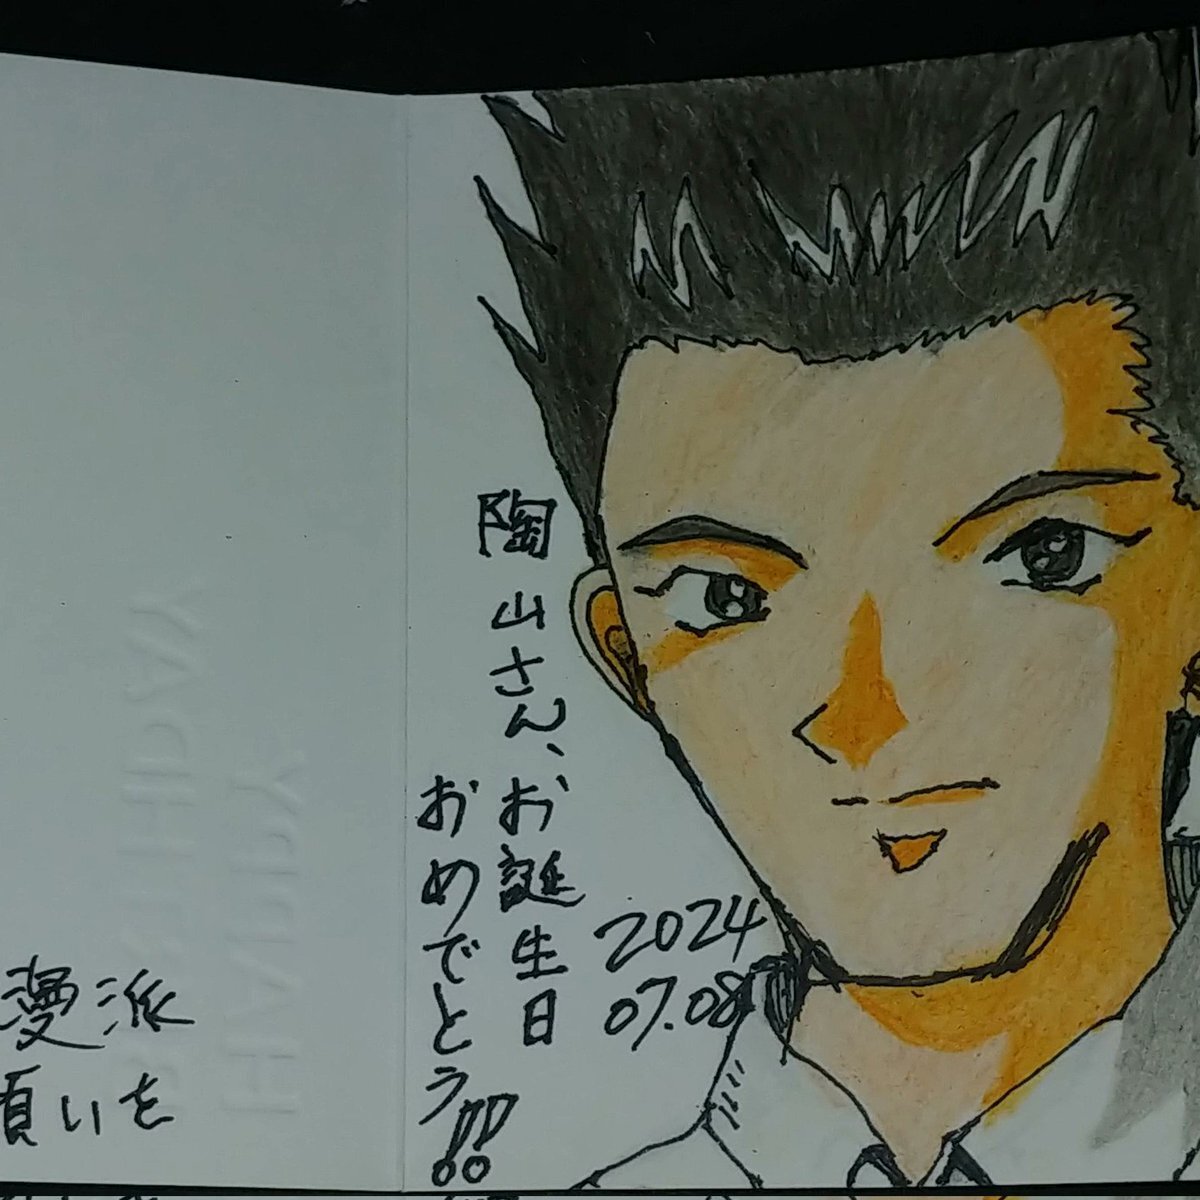 陶山さん、お誕生日
おめでとう!!
2024
07.08
漫派
願いを